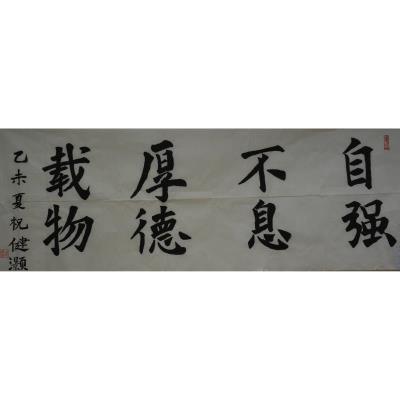 自强
不息
厚德
载物
乙未夏祝健灏